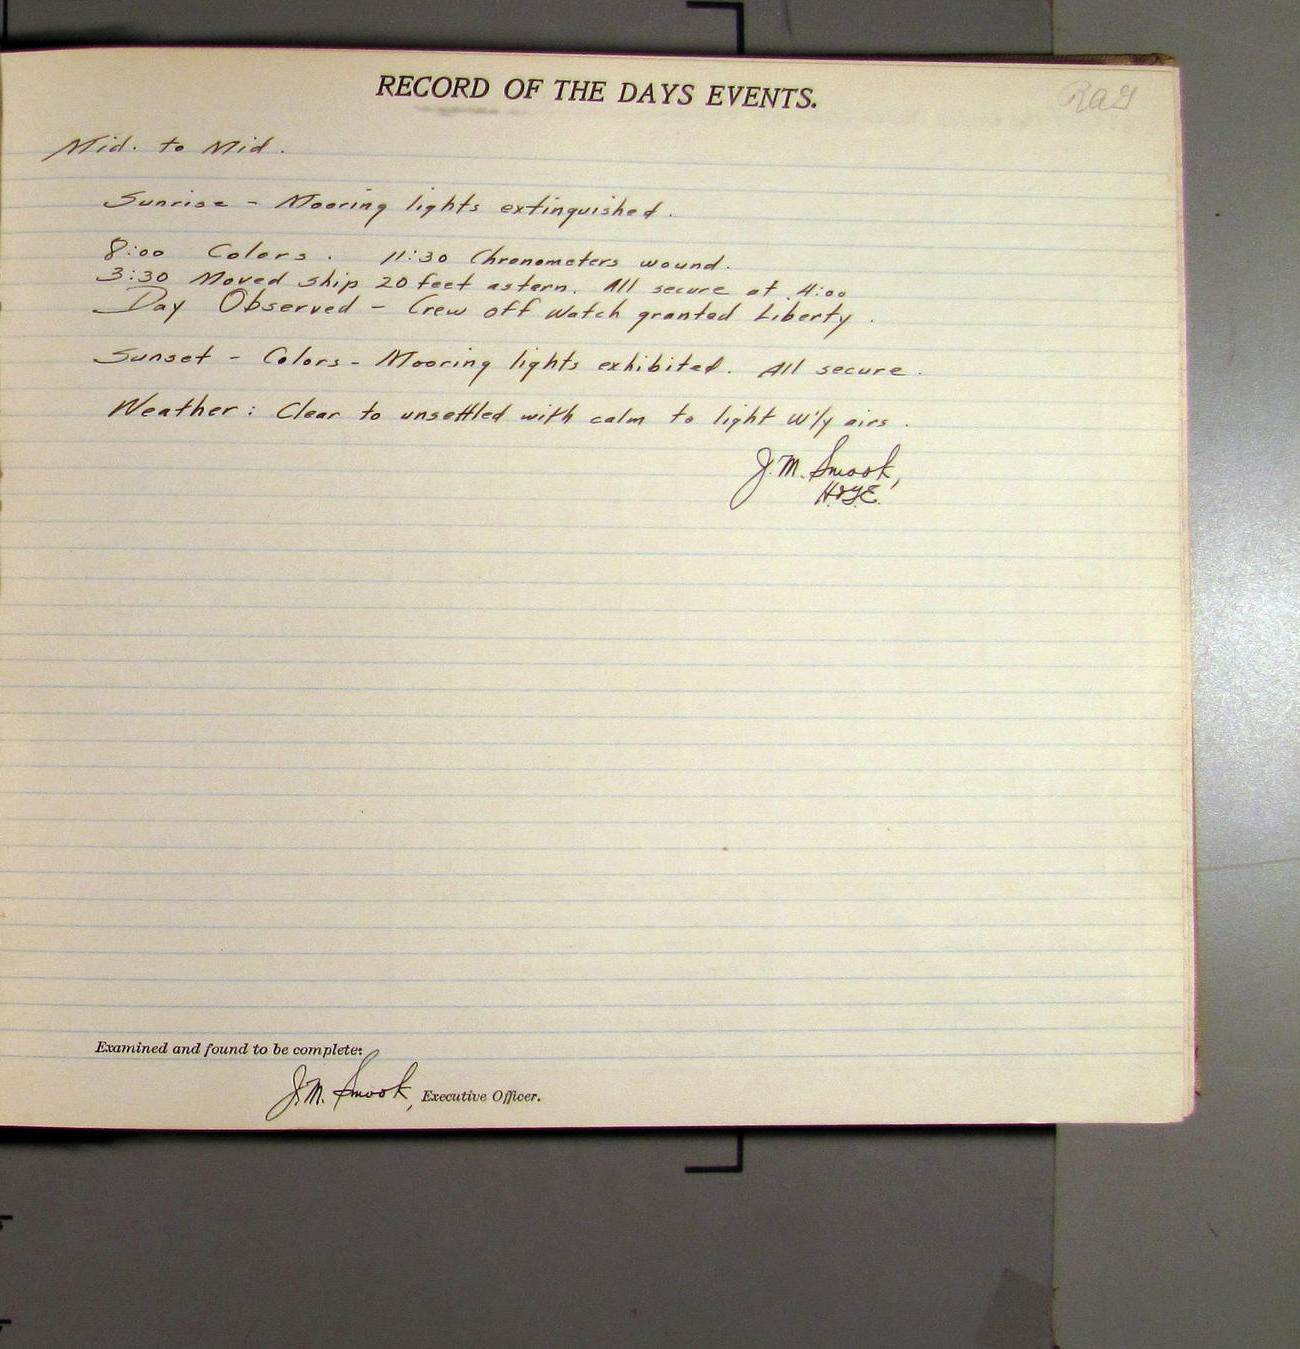 RECORD OF THE DAYS EVENTS.
RaG
Mid. to Mid.
Sunrise - Mooring lights extinguished.
8:00 Colors. 11:30 Chronometers wound.
3:30 Moved ship 20 feet astern. All secure at 4:00
Day Observed - Crew off watch granted Liberty.
Sunset - Colors - Mooring lights exhibited. All secure.
Weather: Clear to unsettled with calm to light W'ly airs.
J.M. Smook,
H.&G.E.
Examined and found to be complete:
J.M. Smook, Executive Officer.